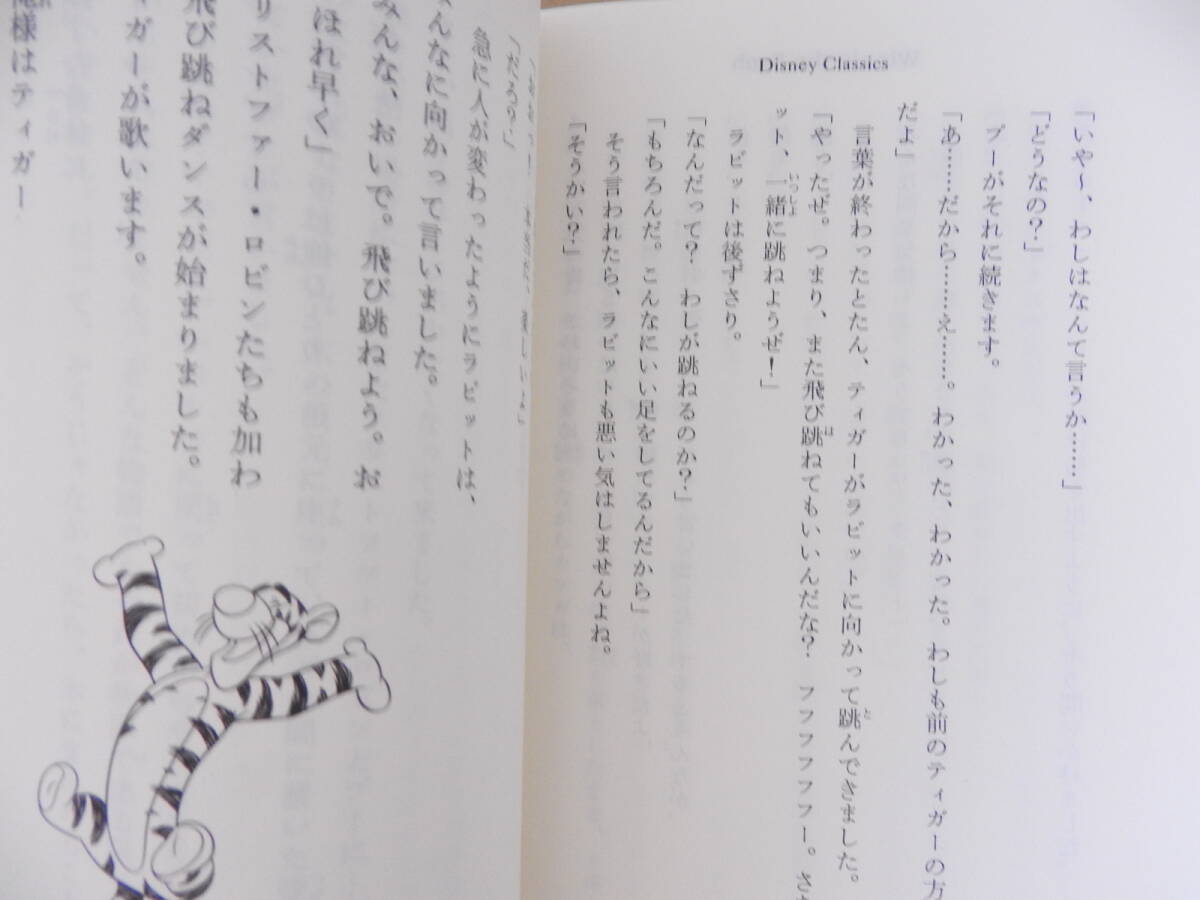 Disney Classics
「いや〜、わしはなんて言うか……」
「どうなの？」
プーがそれに続きます。
「あ……だから………え……。わかった、わかった。わしも前のティガーの方
だよ」
言葉が終わったとたん、ティガーがラビットに向かって跳んできました。
「やったぜ。つまり、また飛び跳ねてもいいんだな？　フフフフフフー。さ
ット、一緒に跳ねようぜ！」
ラビットは後ずさり。
「なんだって？　わしが跳ねるのか？」
「もちろんだ。こんなにいい足をしてるんだから」
そう言われたら、ラビットも悪い気はしませんよね。
「そうかい？」
「だろ？」
急に人が変わったようにラビットは、
んなに向かって言いました。
みんな、おいで。飛び跳ねよう。お
ほれ早く」
リストファー・ロビンたちも加わ
飛び跳ねダンスが始まりました。
ィガーが歌います。
俺様はティガー